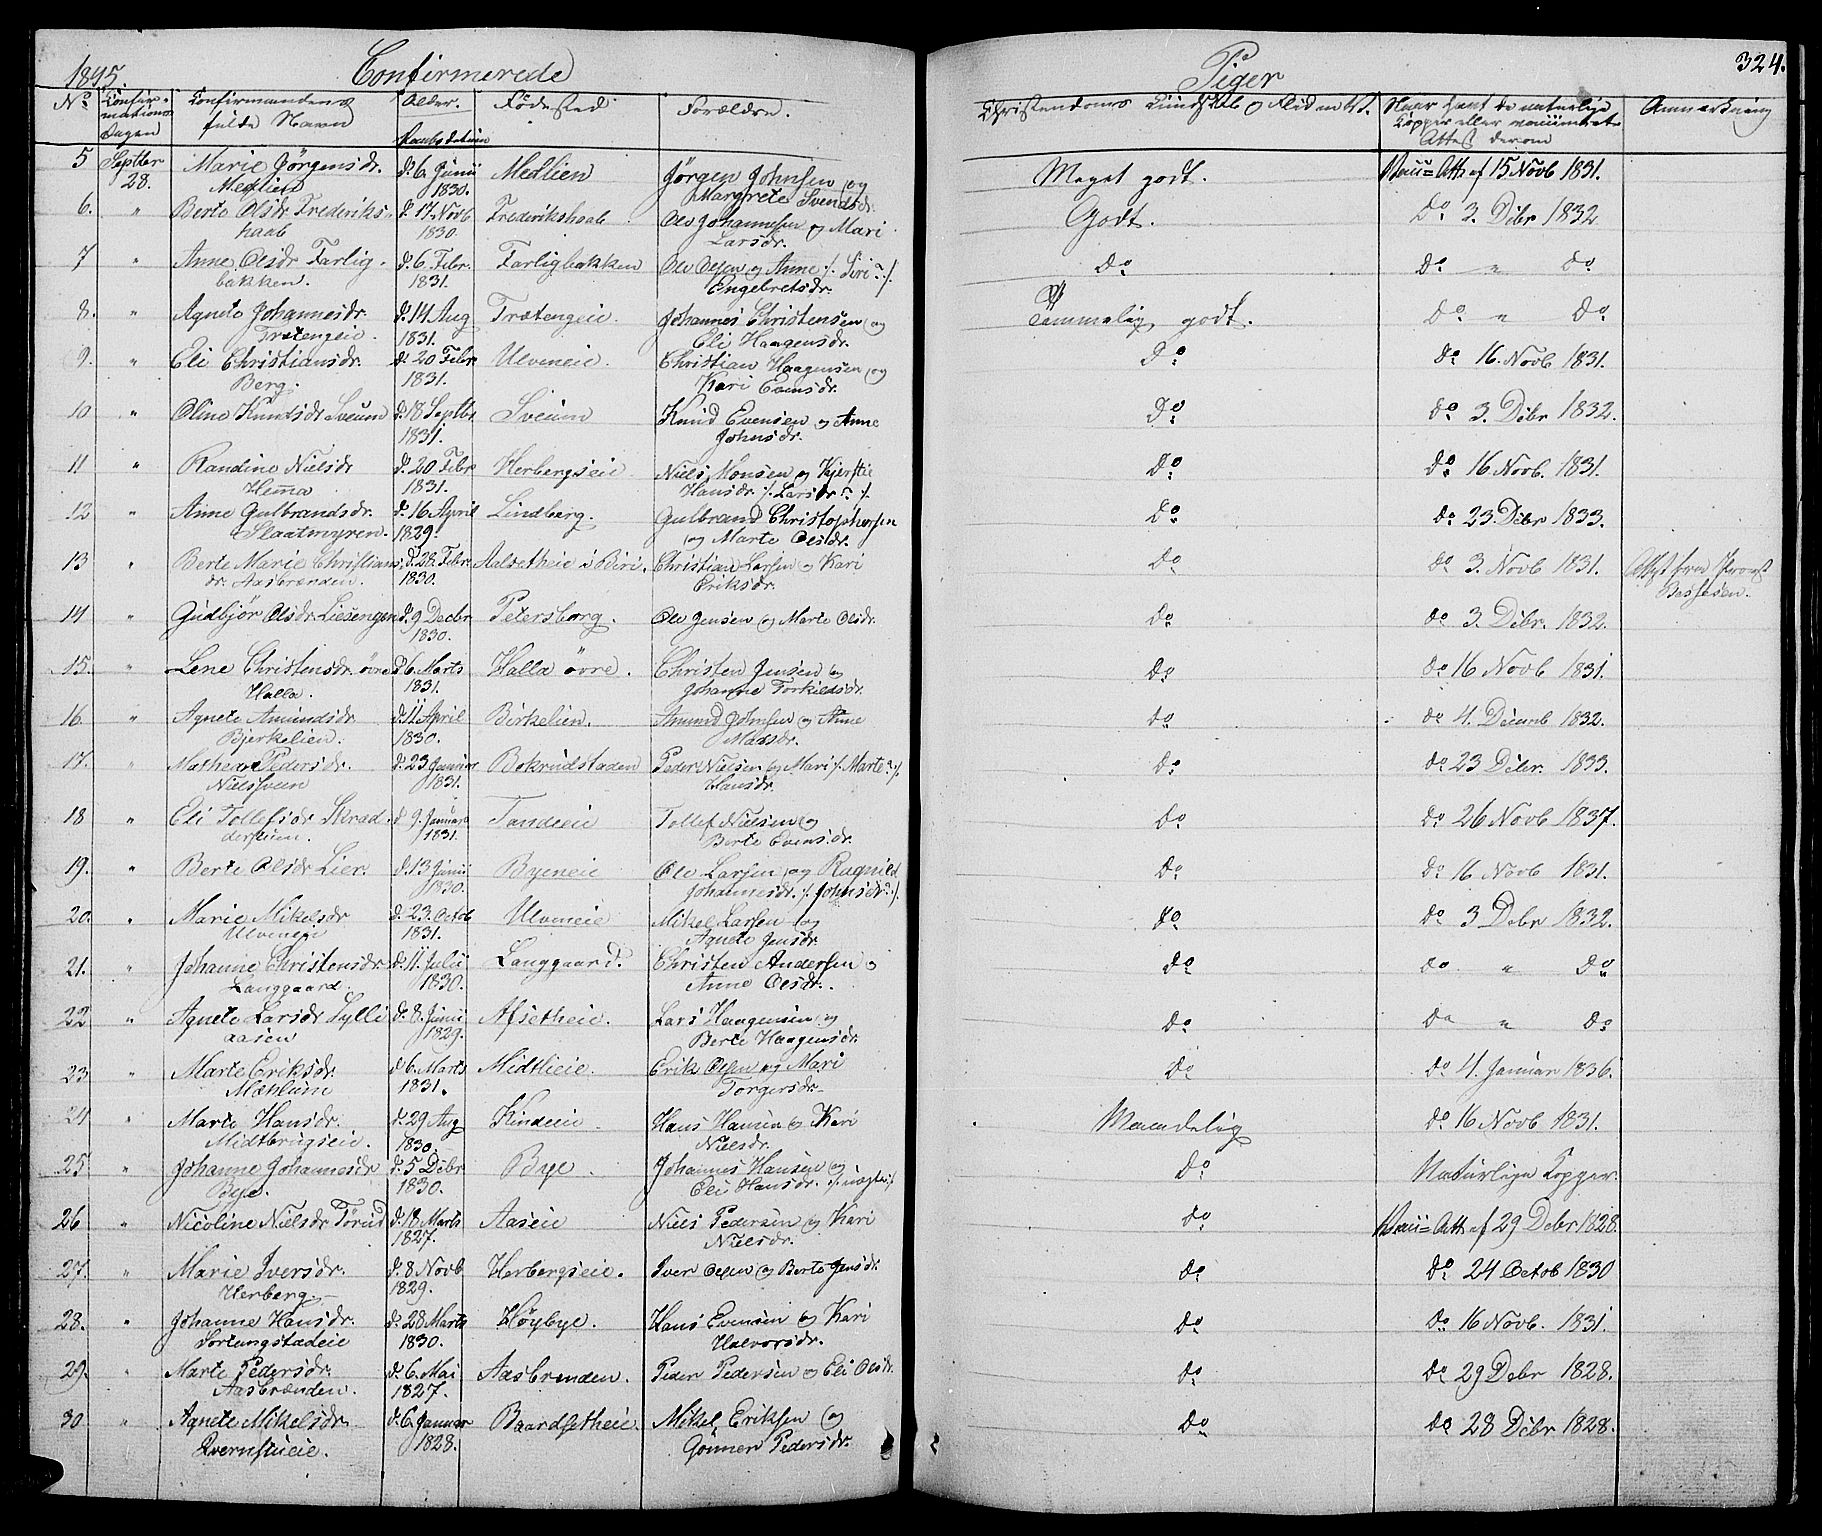 1845. Confirmerede Piger 324.
No. Confirmations Dagen Confirmandens fulde Navn Alder. Daabsdatum Fødested Forældre. Christendoms Kundskab og Flid m. V. Naar havt de naturlige Kopper eller vaccinerede Attest derom Anmærkning
5 Septbr 28. Marie Jørgensdr. d. 6. Junii Medlien Jørgen Johnsen og Meget godt. Vacc=Att: af 15 Novb 1831.
Medlien 1830. Margrete Svendsdr.
6. " Berte Olsdr Frederiks- d. 17. Novb Frederikshaab Ole Johannesen og Mari Godt. Do 3. Debr 1832
haab 1830. Larsdr.
7 " Anne Olsdr Farlig- d. 6. Febr. Farligbakken Ole Olsen og Anne ./. Siri? ./. Do Do " Do
bakken. 1831. Engebretsdr.
8. " Agnete Johannesdr. d. 14 Aug Trætengeie. Johannes Christensen og Temmelig godt. Do " Do
Trætengeie. 1831. Eli Haagensdr.
9. " Eli Christiansdr. d. 20 Febr Ulveneie. Christian Haagensen og Do Do 16. Novb 1831.
Berg. 1831. Kari Evensdr.
10 " Oline Knudsdr Sveum d. 18 Septbr Sveum Knud Evensen og Anne Do Do 3. Debr 1832.
1831. Johnsdr.
11 " Randine Nielsdr d. 20 Febr Herbergseie Niels Monsen og Kjerstie Do Do 16 Novb. 1831.
Hemma 1831. Hansdr. ./. Larsdr? ./.
12 " Anne Gulbrandsdr. d. 16 April Lindberg. Gulbrand Christophersen Do Do 23 Debr 1833.
Slaatmyren. 1829. og Marte Olsdr.
13 " Berte Marie Christians- d. 28. Febr. Aalsetheie i Biri. Christian Larsen og Kari Do Do 3. Novb 1831. Attest fra Provst
dr. Aasbrænden. 1830. Eriksdr.
14 " Gudbjør Olsdr. Liesengen d. 9 Decbr Petersborg. Ole Jensen og Marte Olsdr. Do Do 3. Debr. 1832.
1830.
15. " Lene Christensdr. øvre d. 6. Marts Halla øvre. Christen Jensen og Do Do 16 Novb 1831.
Halla. 1831. Johanne Torkildsdr.
16. " Agnete Amundsdr d. 11 April Birkelien. Amund Johnsen og Anne Do Do 4. Decmb 1832.
Bjerkelien. 1830. Madsdr.
17. " Mathea Pedersdr. d. 23 Januar Bokrudstaden Peder Nielsen og Mari ./. Marte? ./. Do Do 23 Debr. 1833.
Nielssveen 1831. Hansdr.
18 " Eli Tollefsdr Skræd- d 9. Januar Tandeeie Tollef Nielsen og Do Do 26 Novb 1837.
1831. Berte Evensdr.
19. " Berte Olsdr Lier. d. 13 Junii Byeneie Ole Larsen og Ragnild Do Do 16 Novb. 1831.
1830. Johannesdr. ./. Johnsdr? ./.
20. " Marie Mikelsdr d. 23 Octob Ulveneie Mikel Larsen og Do Do 3 Debr 1832.
Ulveneie 1831. Agnete Jensdr.
21. " Johanne Christensdr d. 11. Julii Langgaard. Christen Andersen og Do Do " Do
Langgaard. 1830. Anne Olsdr.
22 " Agnete Larsdr Sylli- d. 8. Junii Afsetheie. Lars Haagensen og Do Do " Do
aasen 1829. Berte Haagensdr.
23 " Marte Eriksdr. d 6. Marts Midtlieie. Erik Olsen og Mari Do Do 4. Januar 1836.
Mæhlum 1831. Torgersdr.
24 " Marte Hansdr. d. 29 Aug Kindeeie. Hans Hansen og Kari Maadelig Do 16 Novb 1831.
Midtbrugseie. 1830. Nielsdr.
25. " Johanne Johannesdr d. 5 Debr Bye. Johannes Hansen og Do Naturlige Kopper.
Bye. 1830. Eli Hansdr.
26 " Nicoline Nielsdr Tørud d. 18 Marts Aaseie Niels Pedersen og Kari Do Vacc=Att: af 29 Debr 1828.
1827. Nielsdr.
27. " Marie Iversdr. d. 8 Novb Herbergseie. Iver Olsen og Berte Jensdr. Do Do 24 Octob 1830
Herberg. 1829.
28. " Johanne Hansdr. d. 28 Marts Høybye. Hans Evensen og Kari Do Do 16 Novb. 1831.
Sortungstadeie 1830. Halvorsdr.
29. " Marte Pedersdr d. 6. Mai Aasbrenden. Peder Pedersen og Eli Olsdr. Do Do 29 Debr 1828.
Aasbrænden. 1827.
30 " Agnete Mikelsdr. d. 6. Januar Baardsetheie. Mikel Eriksen og Do Do 28 Debr 1828.
Qvernstueie. 1828. Gønner Pedersdr.